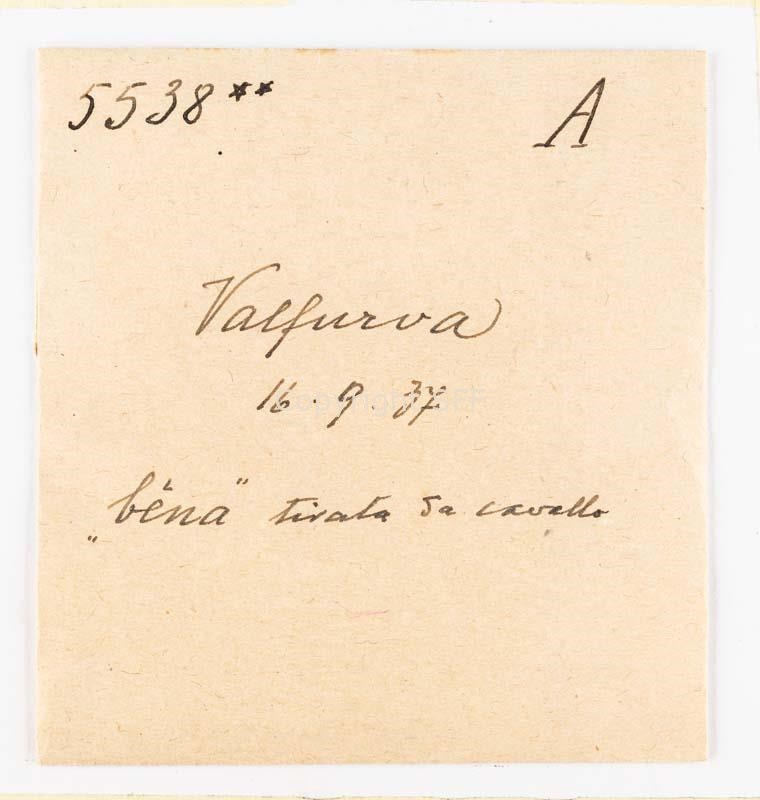 5538** A
Valfurva
16. 9 37
„bëna" tirata da cavallo